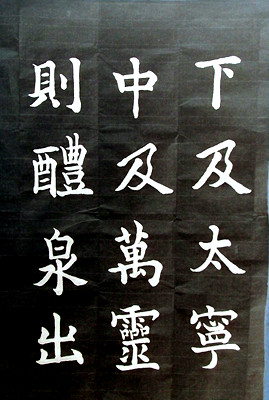 下及太寧
中及萬靈
則醴泉出